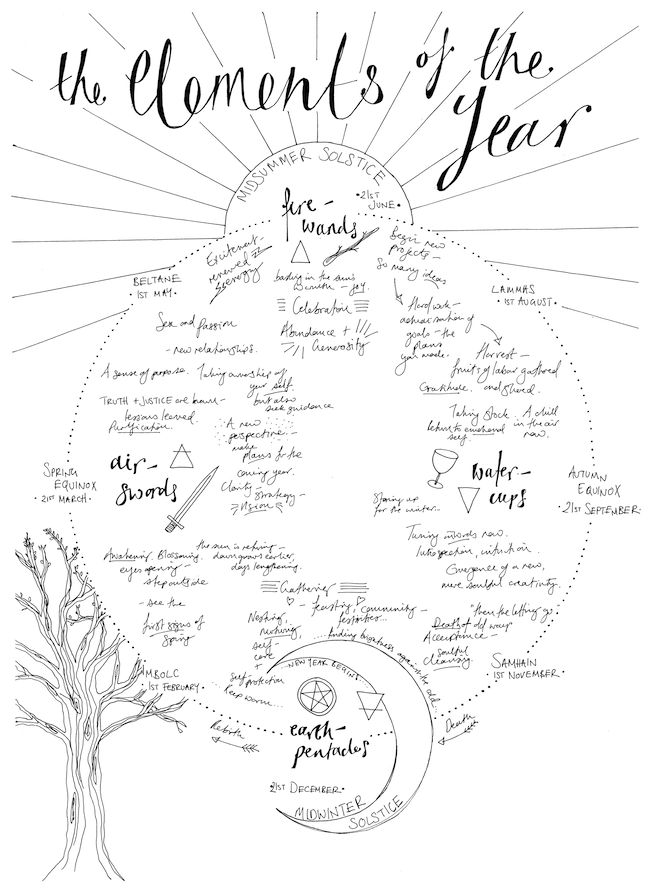 the Elements of the
Year
MIDSUMMER SOLSTICE
• 21ST
JUNE •
fire –
wands
Excitement –
renewed
energy
basking in the sun's
warmth – joy.
Celebration
Abundance +
Generosity
Begin new
projects –
So many ideas
Hard work –
actualisation of
goals – the
plans
you made.
BELTANE
• 1ST MAY •
LAMMAS
• 1ST AUGUST •
Sex and passion
– new relationships.
A sense of purpose. Taking ownership of
your self
but also
seek guidance
Harvest –
fruits of labour gathered
Gratitude. and shared.
TRUTH + JUSTICE are born –
lessons learned
Purification.
A new
perspective –
make
plans for the
coming year.
Clarity – Strategy –
Vision
Taking stock. A chill
in the air
self
now.
air –
swords
SPRING
EQUINOX
• 21ST MARCH •
water –
cups
AUTUMN
EQUINOX
• 21ST SEPTEMBER •
Storing up
for the winter..
Tuning inwards now.
Introspection, intuition.
Emergence of a new,
more soulful creativity.
Awakening. Blossoming.
eyes opening –
step outside
the sun is rising –
dawn grows earlier,
days lengthening.
– see the
first signs of
Spring
Gathering
– feasting, community –
festivities..
Nesting,
nurturing,
self-
care
+
self-
protection
Keep warm...
... finding brightness against the cold...
then the letting go
Death of old ways
Acceptance –
soulful
cleansing.
IMBOLC
1ST FEBRUARY •
SAMHAIN
1ST NOVEMBER •
– NEW YEAR BEGINS
earth –
pentacles
Rebirth
Death
• 21ST DECEMBER •
MIDWINTER
SOLSTICE